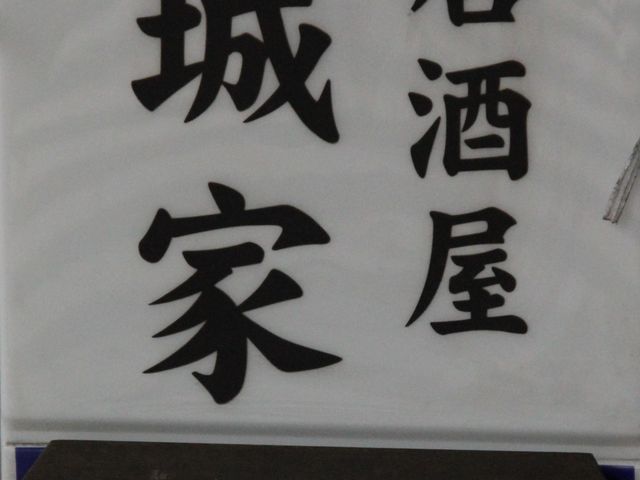 居酒屋
城家